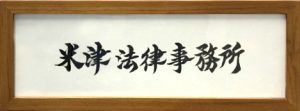 米津法律事務所